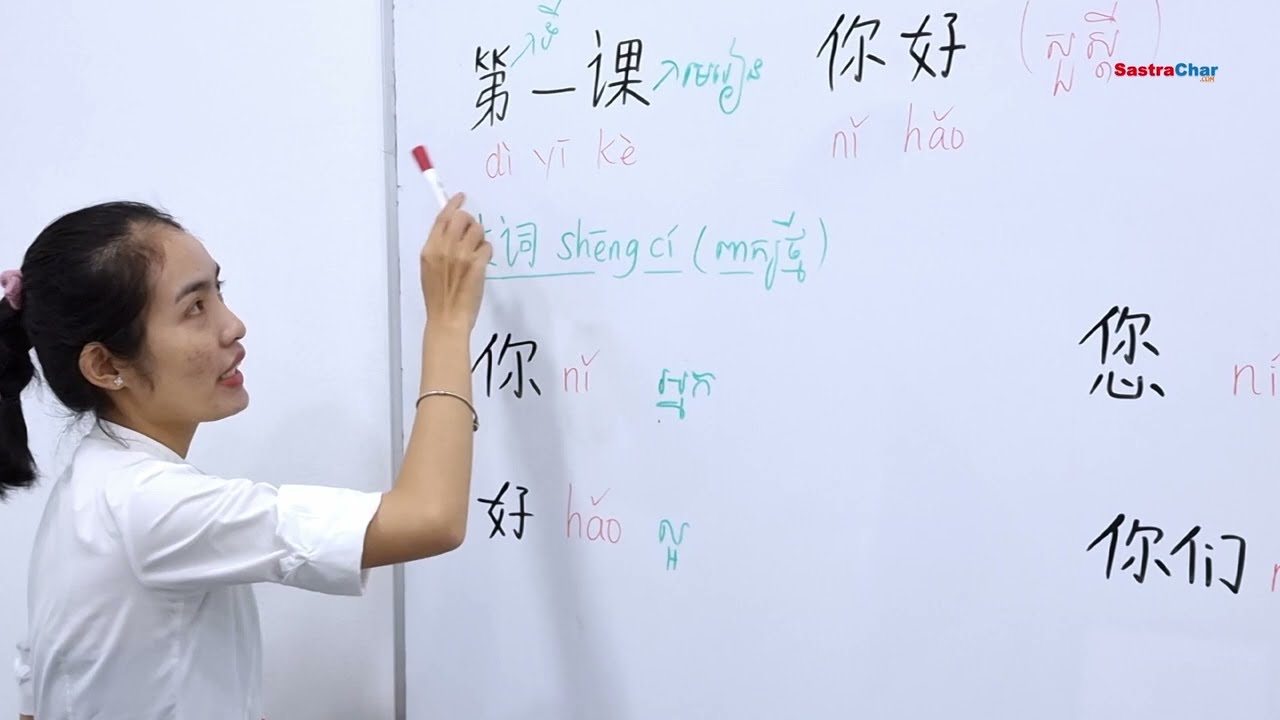 第一课 មេរៀន 你好 (សួស្តី)
SastraChar
.COM
dì yī kè nǐ hǎo
词 shēng cí (ពាក្យថ្មី)
你 nǐ អ្នក 您 ní
好 hǎo ល្អ
你们